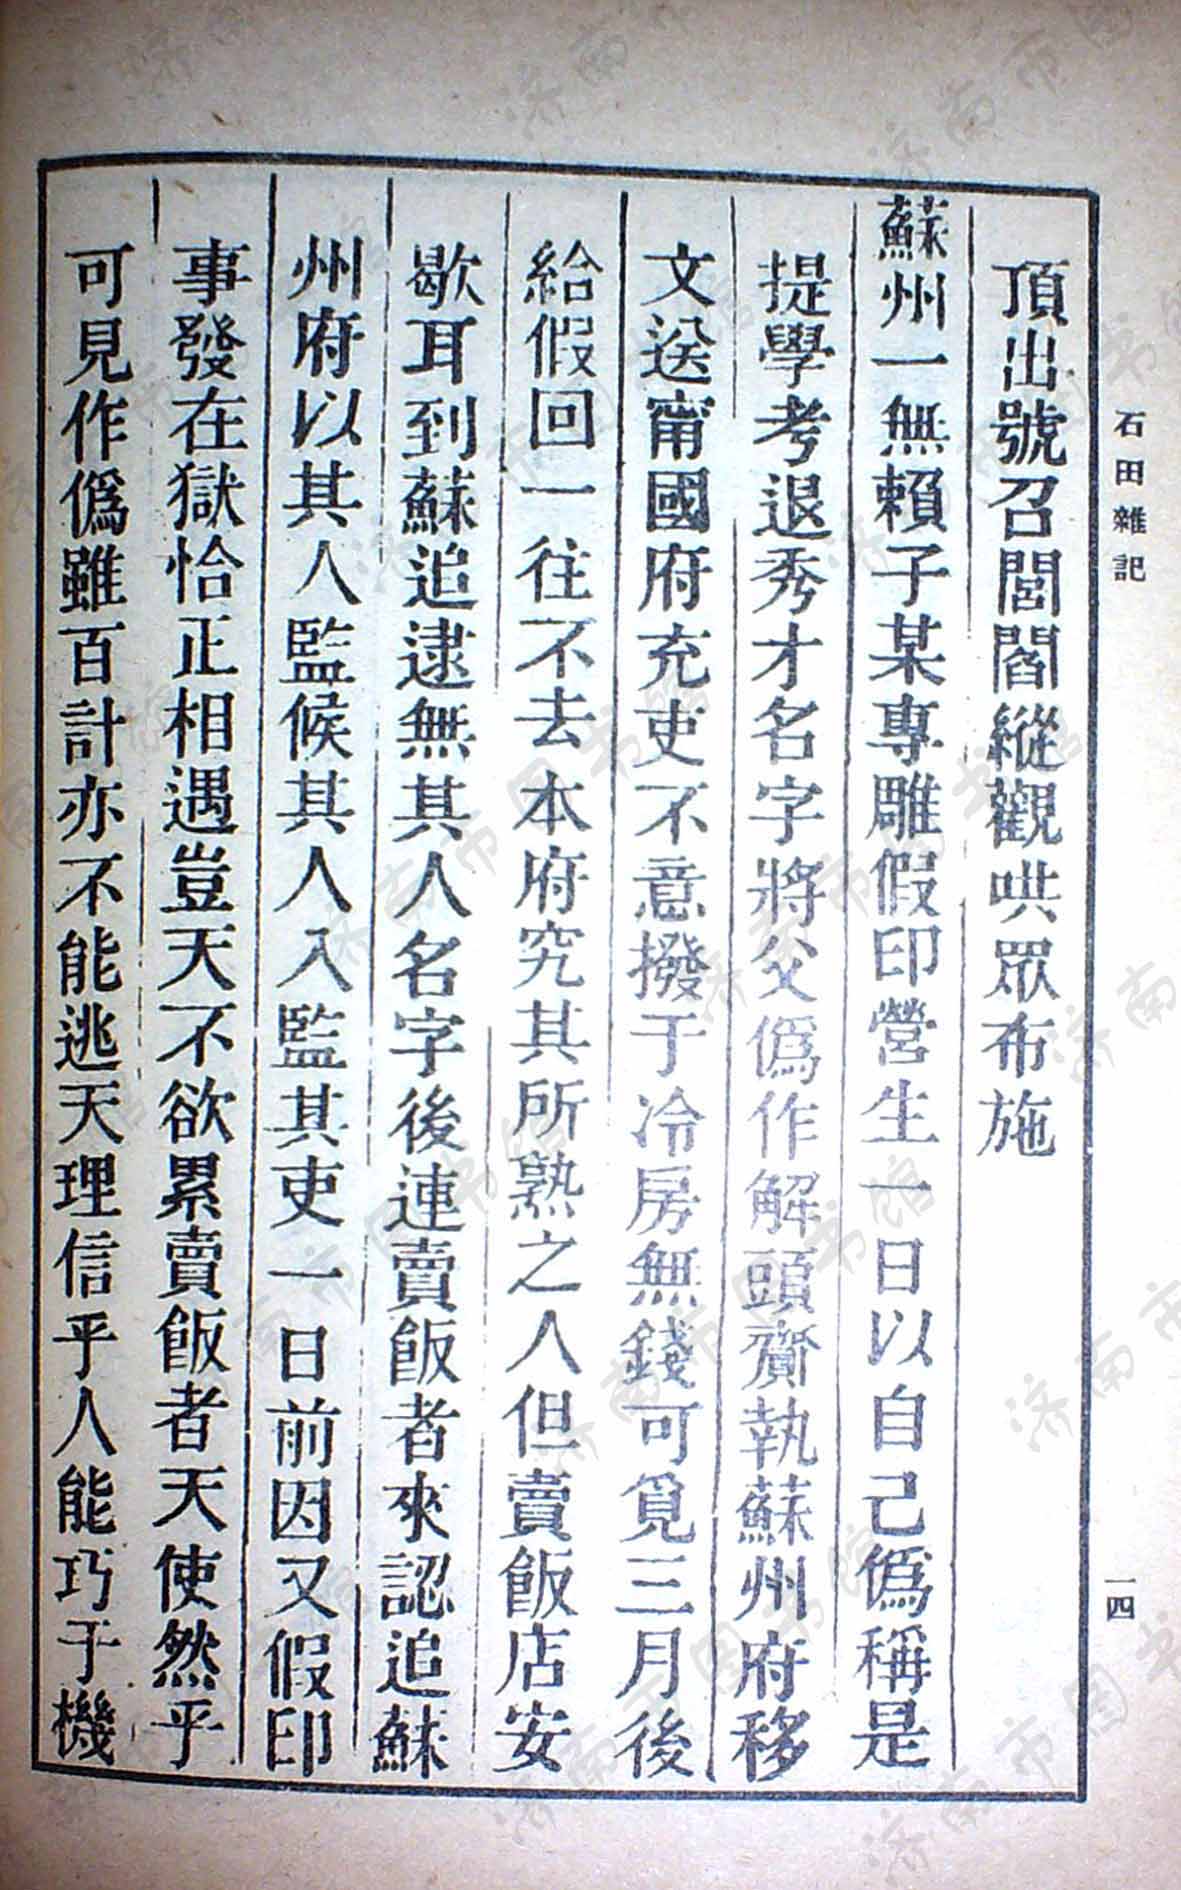 石田雜記
一四
頂出號召閭閻縱觀哄眾布施
蘇州一無賴子某專雕假印營生一日以自己僞稱是
提學考退秀才名字將父僞作解頭齎執蘇州府移
文送甯國府充吏不意撥于冷房無錢可覓三月後
給假回一往不去本府究其所熟之人但賣飯店安
歇耳到蘇追逮無其人名字後連賣飯者來認追蘇
州府以其人監候其人入監其吏一日前因又假印
事發在獄恰正相遇豈天不欲累賣飯者天使然乎
可見作僞雖百計亦不能逃天理信乎人能巧于機
济南市图书馆